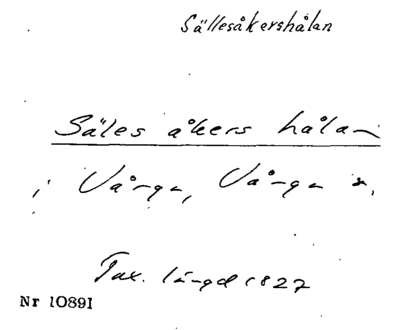 Sällesåkershålan
Säles åkers hålan
i Vånga, Vånga s.
Tax. längd 1827
Nr 10891